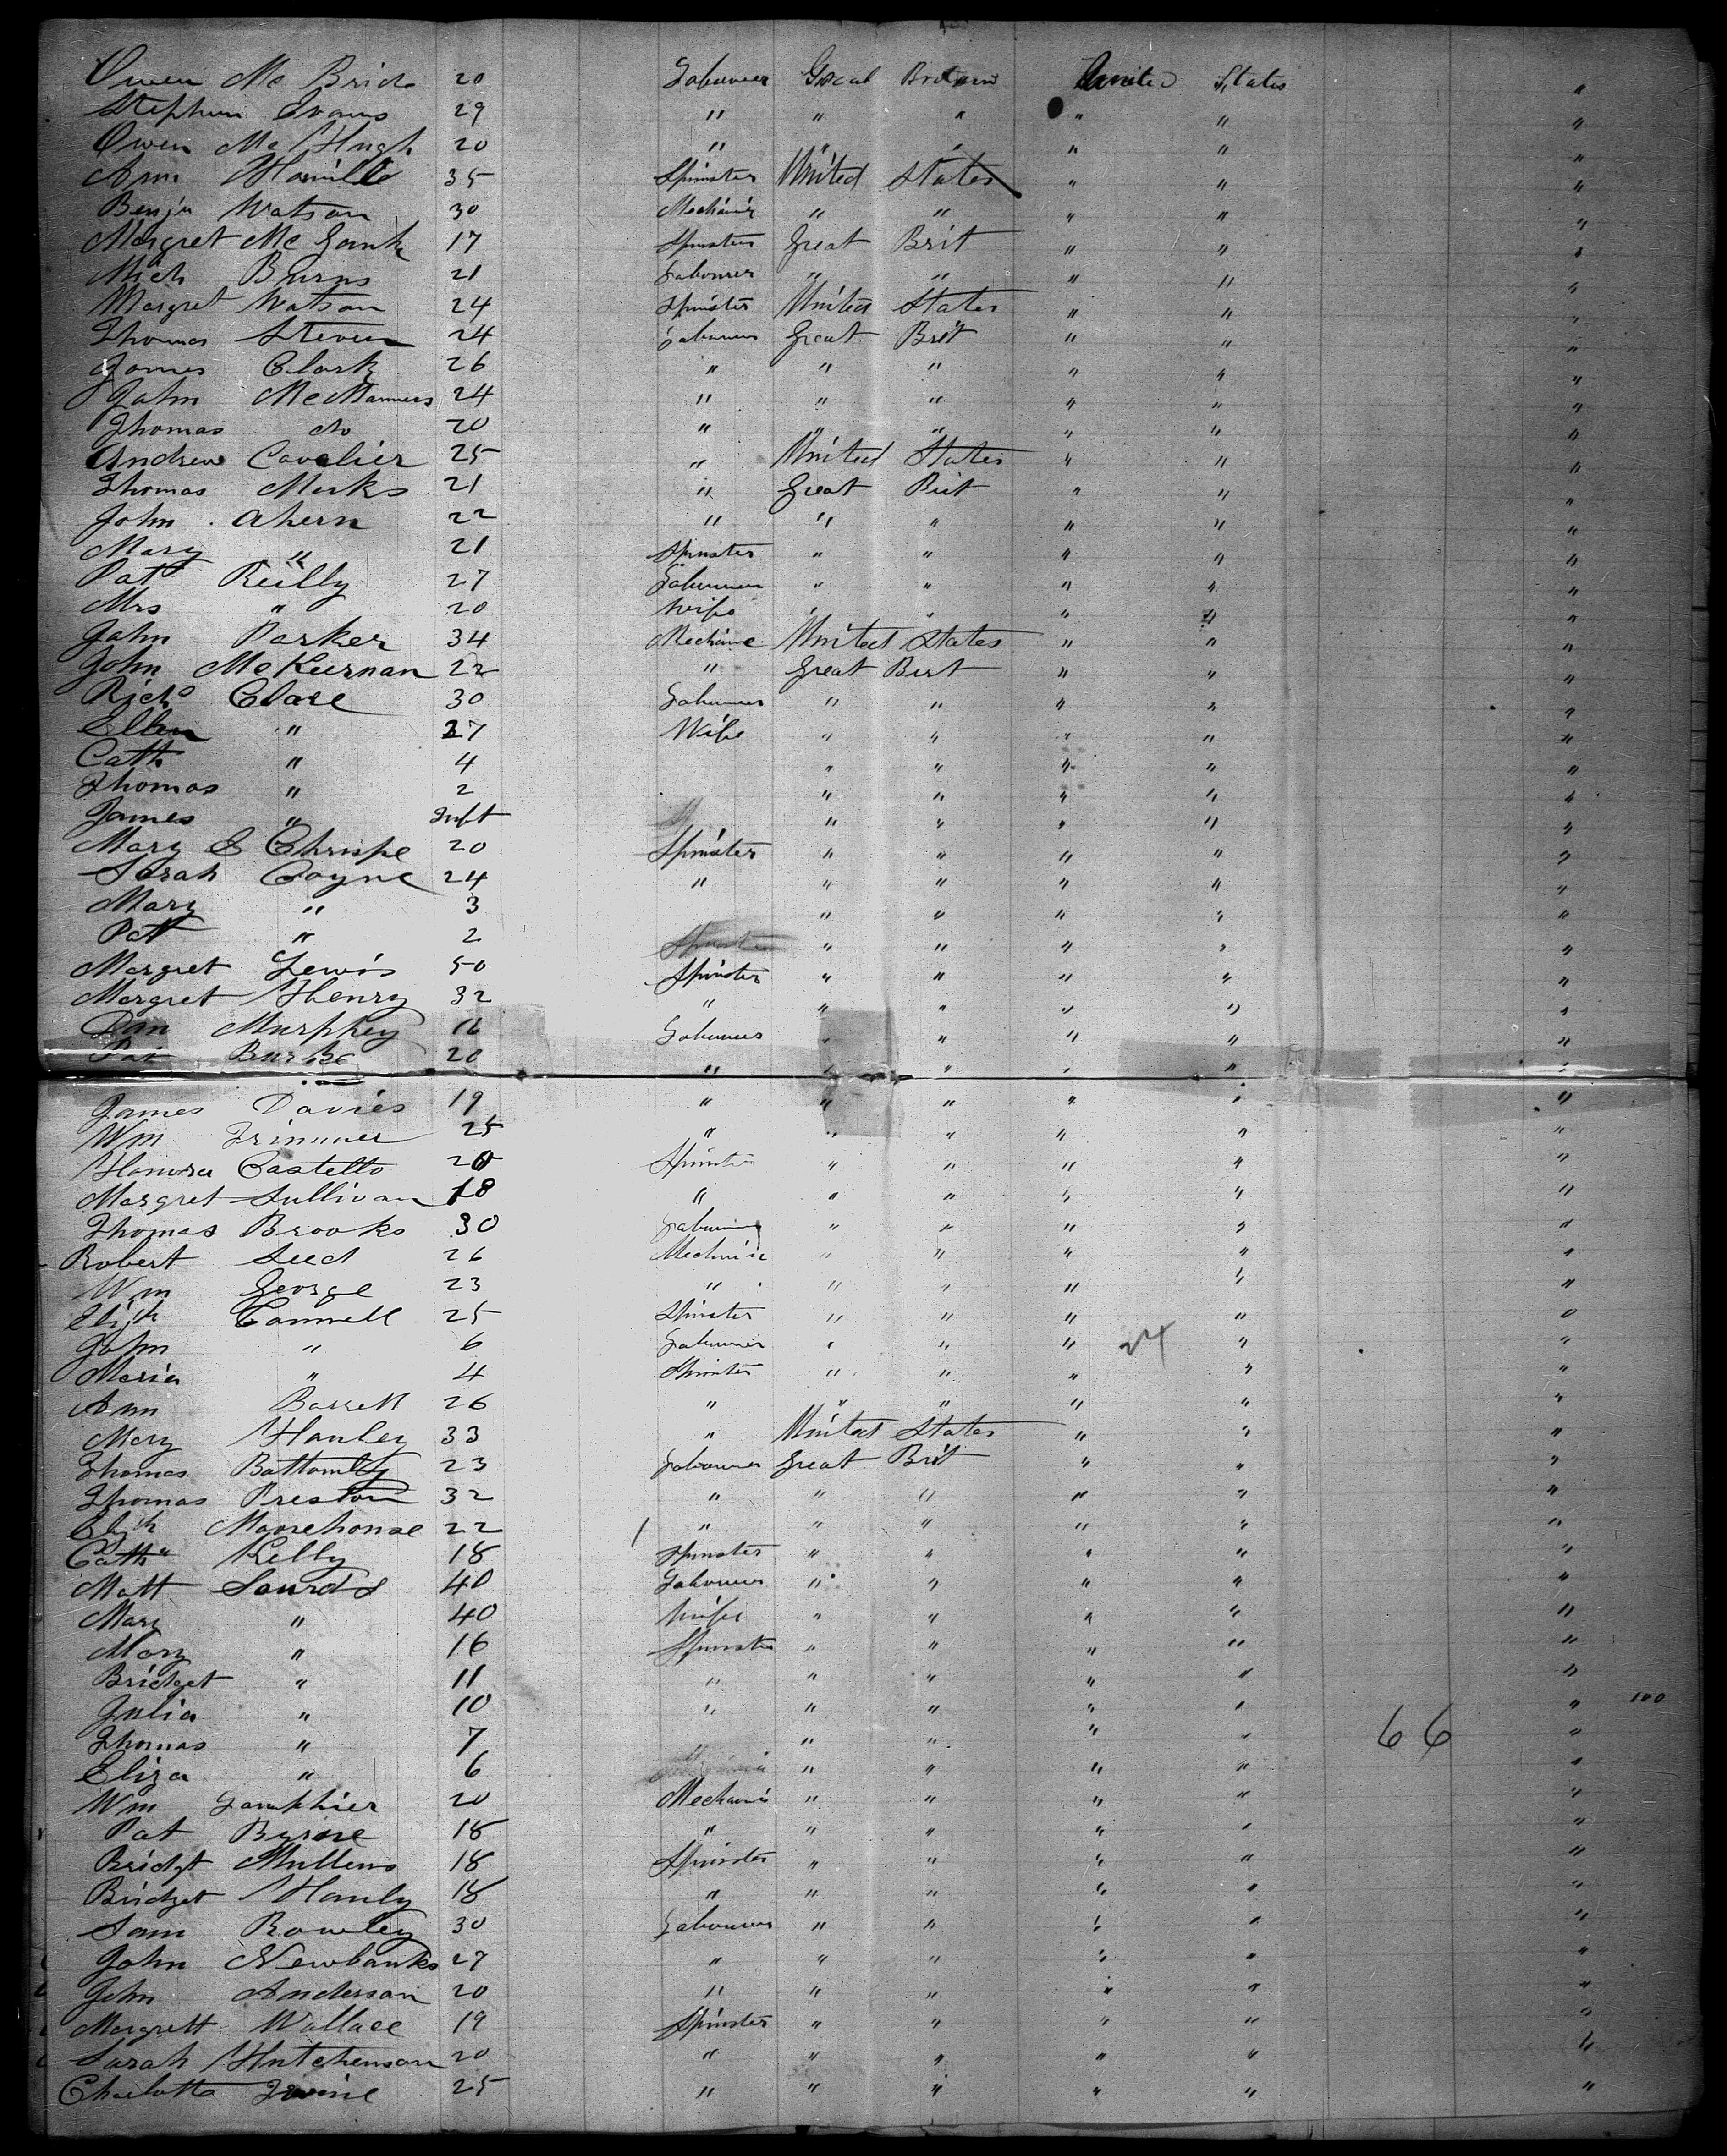 Owen Mc Bride 20 Labourer Great Britain United States "
Stephen Evans 29 " " " " " "
Owen Mc Hugh 20 " " " " " "
Ann Hamill 35 Spinster United States " " "
Benjn Watson 30 Mechanic " " " " "
Margret Mc 17 Spinster Great Brit " " "
Mich Burns 21 Labourer " " " " "
Margret Watson 24 Spinster United States " " "
Thomas Steven 24 Labourer Great Brit " " "
James Clark 26 " " " " " "
John McManners 24 " " " " " "
Thomas do 20 " " " " " "
Andrew Cavalier 25 " United States " " "
Thomas Marks 21 " Great Brit " " "
John Ahern 22 " " " " " "
Mary " 21 Spinster " " " " "
Pat Reilly 27 Labourer " " " " "
Mrs " 20 Wife " " " " "
John Parker 34 Mechanic United States " " "
John McKeernan 22 " Great Brit " " "
Richd Clare 30 Labourer " " " " "
Ellen " 27 Wife " " " " "
Cath " 4 " " " " "
Thomas " 2 " " " " "
James " Inft " " " " "
Mary E 20 Spinster " " " " "
Sarah Coyne 24 " " " " " "
Mary " 3 " " " " "
Patt " 2 " " " " "
Margret Lewis 50 Spinster " " " " "
Margret Henry 32 " " " " " "
Dan Murphey 16 Labourer " " " " "
Pat Burke 20 " " " " " "
James Davies 19 " " " " " "
Wm Trimmer 25 " " " " " "
Honora Castello 20 Spinster " " " " "
Margret Sullivan 18 " " " " " "
Thomas Brooks 30 Labourer " " " " "
Robert Seed 26 Mechanic " " " " "
Wm George 23 " " " " " "
Elizth Cannell 25 Spinster " " " " "
John " 6 Labourer " " " 24 " "
Maria " 4 Spinster " " " " "
Ann Barrett 26 " " " " " "
Mary Hanley 33 " United States " " "
Thomas Bottomley 23 Labourer Great Brit " " "
Thomas Preston 32 " " " " " "
Elizth Moorehouse 22 " " " " " "
Cathn Kelly 18 Spinster " " " " "
Matt 40 Labourer " " " " "
Mary " 40 Wife " " " " "
Mary " 16 Spinster " " " " "
Bridget " 11 " " " " " "
Julia " 10 " " " " " " 100
Thomas " 7 " " " " 66 "
Eliza " 6 " " " " "
Wm Lamphier 20 Mechanic " " " " "
Pat Byrne 18 " " " " " "
Bridgt Mullens 18 Spinster " " " " "
Bridget Hanly 18 " " " " " "
Sam Rowley 30 Labourer " " " " "
John Newbanks 27 " " " " " "
John Anderson 20 " " " " " "
Margrett Wallace 19 Spinster " " " " "
Sarah Hutchenson 20 " " " " " "
Charlotte Irvine 25 " " " " " "